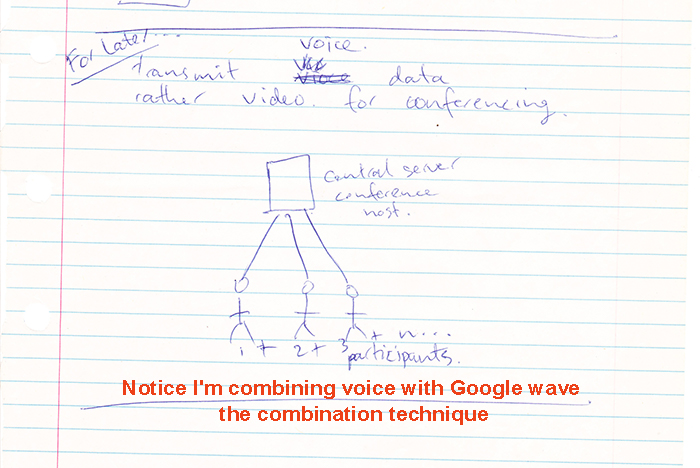 For Later....
voice.
transmit data
rather video. for conferencing.
central server
conference
host.
1 + 2 + 3 + n...
participants.
Notice I'm combining voice with Google wave
the combination technique